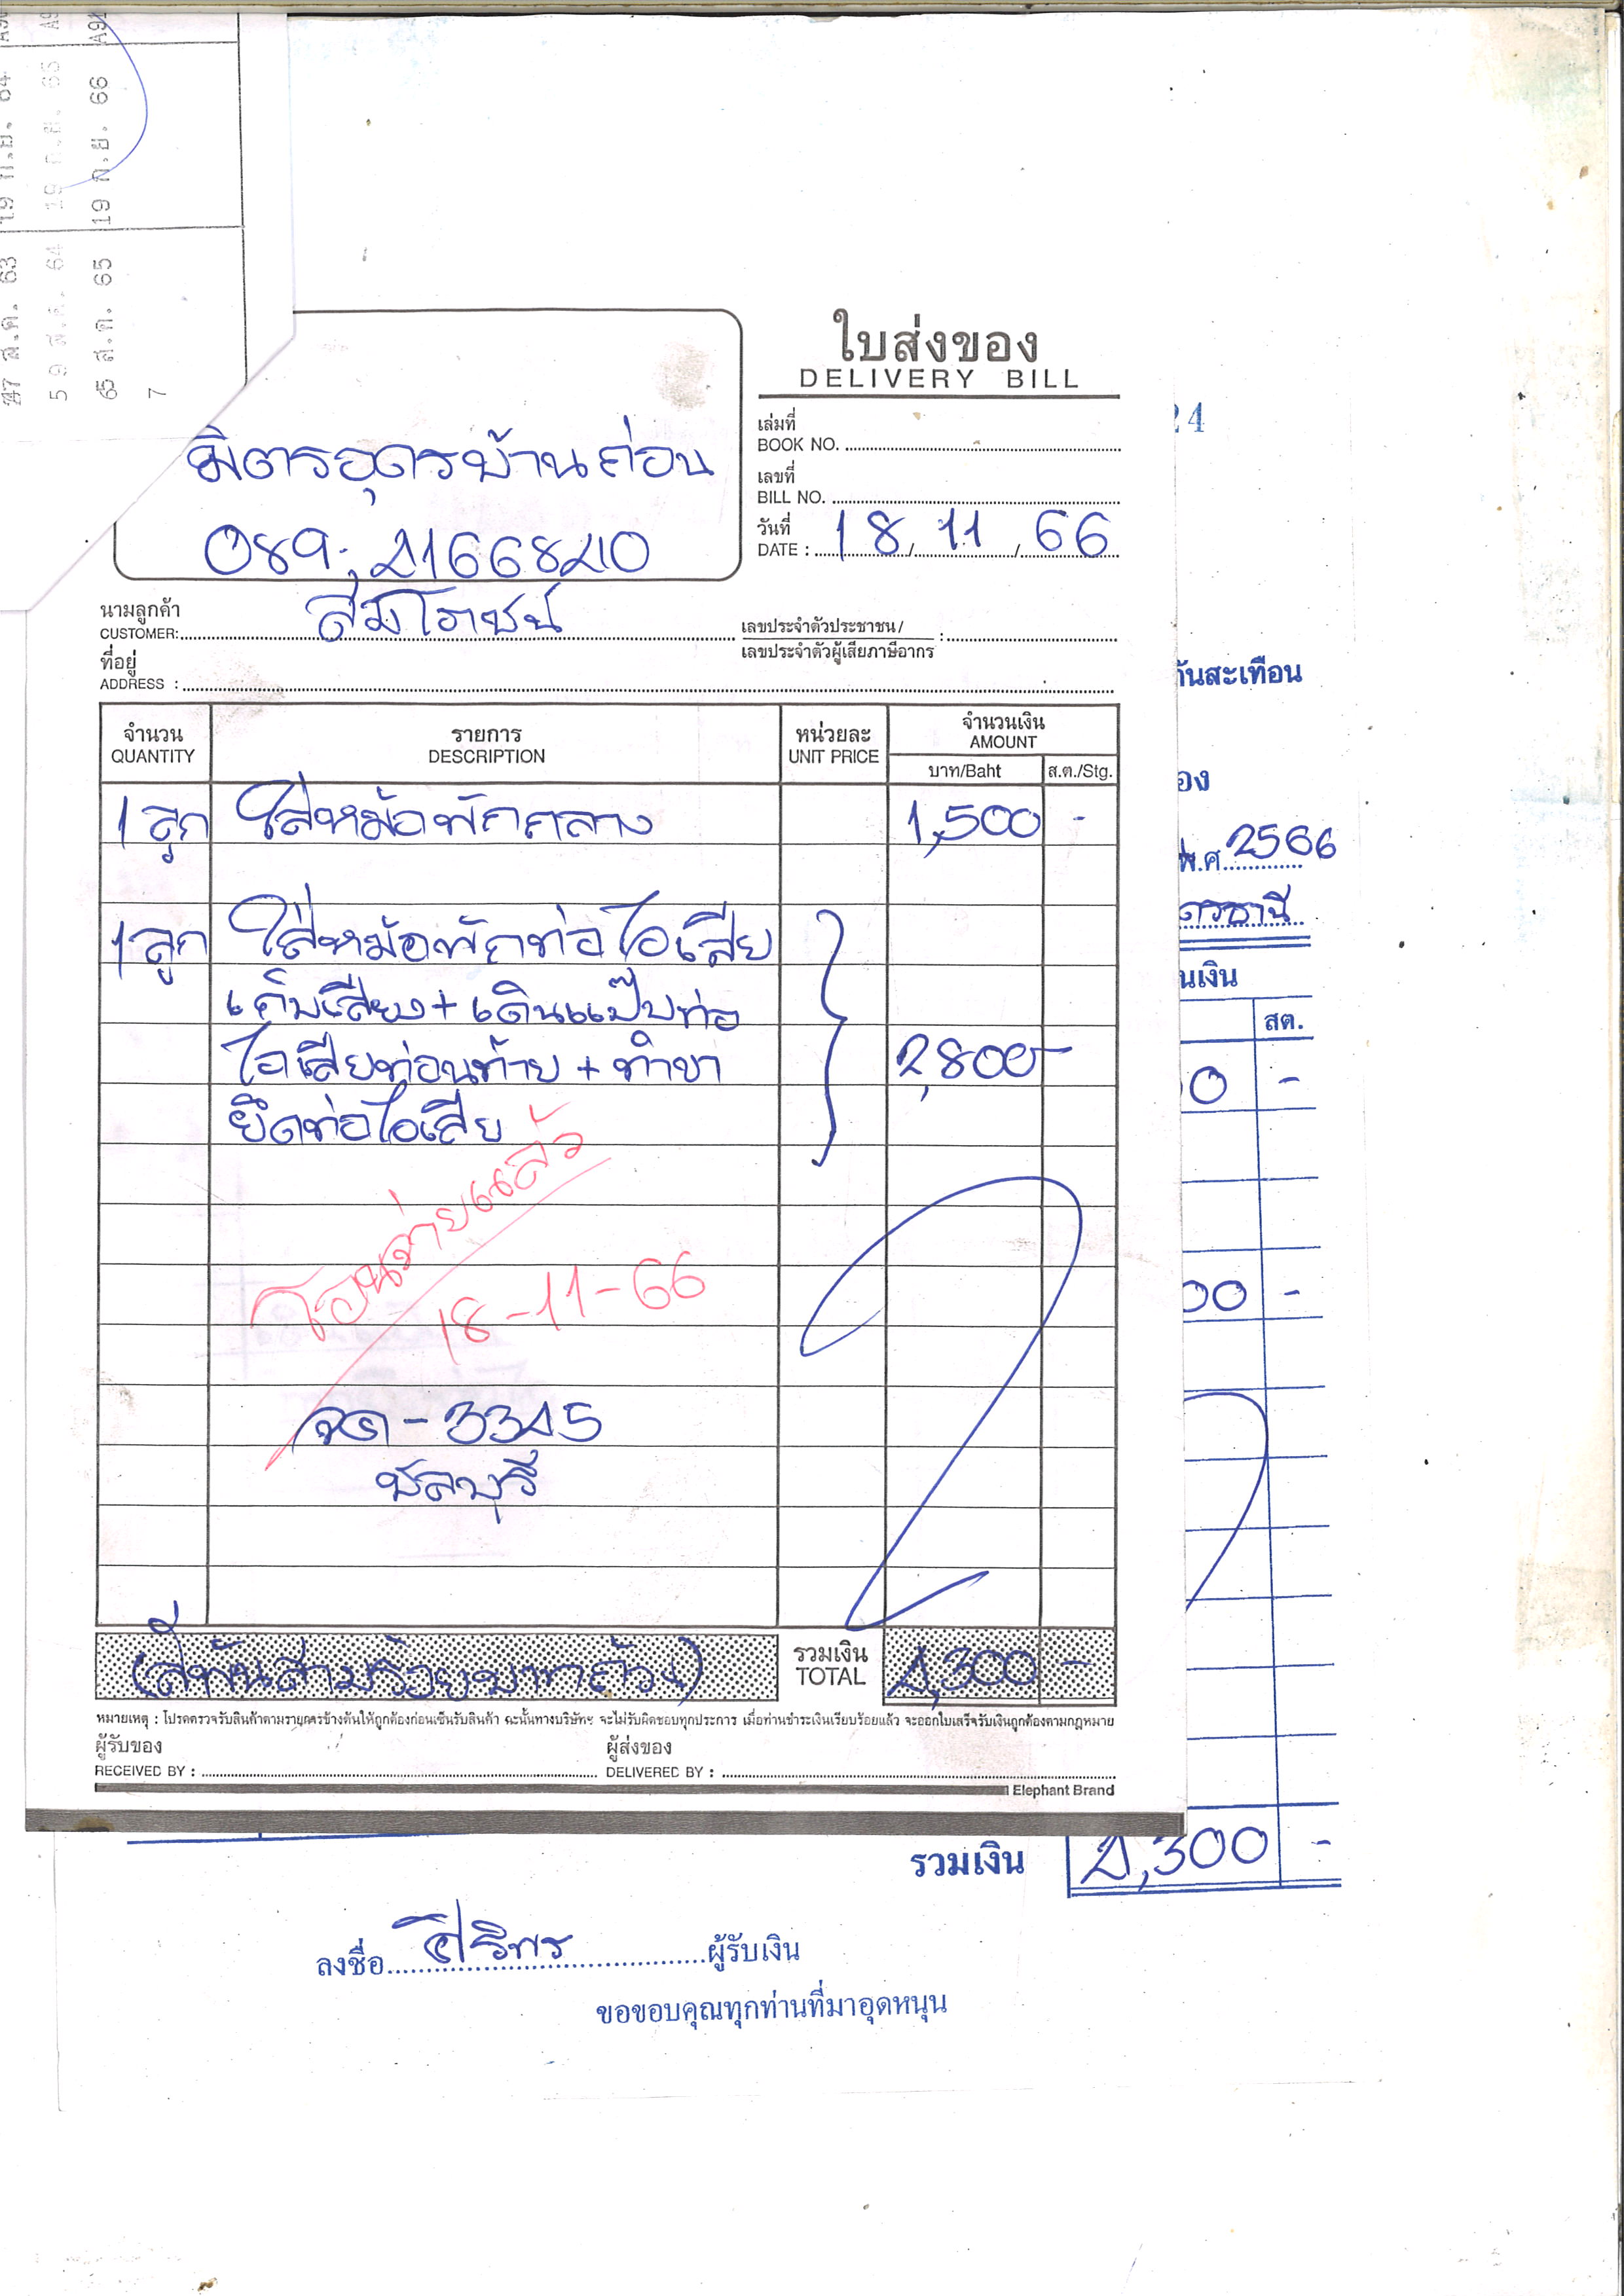 47 ส.ค. 63 19 ก.ย. 64
59 ส.ค. 64 19 ก.ย. 65
65 ส.ค. 65 19 ก.ย. 66
7
ใบส่งของ
DELIVERY BILL
เล่มที่
BOOK NO.
เลขที่
BILL NO.
วันที่
DATE : 18 / 11 / 66
24
มิตรอุดรบ้านถ่อน
089-2166840
นามลูกค้า
CUSTOMER: สมโภชน์
เลขประจำตัวประชาชน/
เลขประจำตัวผู้เสียภาษีอากร :
ที่อยู่
ADDRESS :
กันสะเทือน
จำนวน รายการ หน่วยละ จำนวนเงิน
QUANTITY DESCRIPTION UNIT PRICE AMOUNT
บาท/Baht ส.ต./Stg.
อง
1 ลูก ใส่หม้อพักกลาง 1,500 -
พ.ศ. 2566
1 ลูก ใส่หม้อพักท่อไอเสีย
ดรธานี
เก็บเสียง + เดินแป๊บท่อ
นเงิน
สต.
ไอเสียท่อนท้าย + ทำขา 2,800-
0 -
ยึดท่อไอเสีย
โอนจ่ายแล้ว
18-11-66
00 -
-3345
ชลบุรี
(สี่พันสามร้อยบาทถ้วน) รวมเงิน 4,300 -
TOTAL
หมายเหตุ : โปรดตรวจรับสินค้าตามรายการข้างต้นให้ถูกต้องก่อนเซ็นรับสินค้า ฉะนั้นทางบริษัทฯ จะไม่รับผิดชอบทุกประการ เมื่อท่านชำระเงินเรียบร้อยแล้ว จะออกใบเสร็จรับเงินถูกต้องตามกฎหมาย
ผู้รับของ ผู้ส่งของ
RECEIVED BY : DELIVERED BY :
Elephant Brand
รวมเงิน 4,300 -
ลงชื่อ ศิริพร ผู้รับเงิน
ขอขอบคุณทุกท่านที่มาอุดหนุน